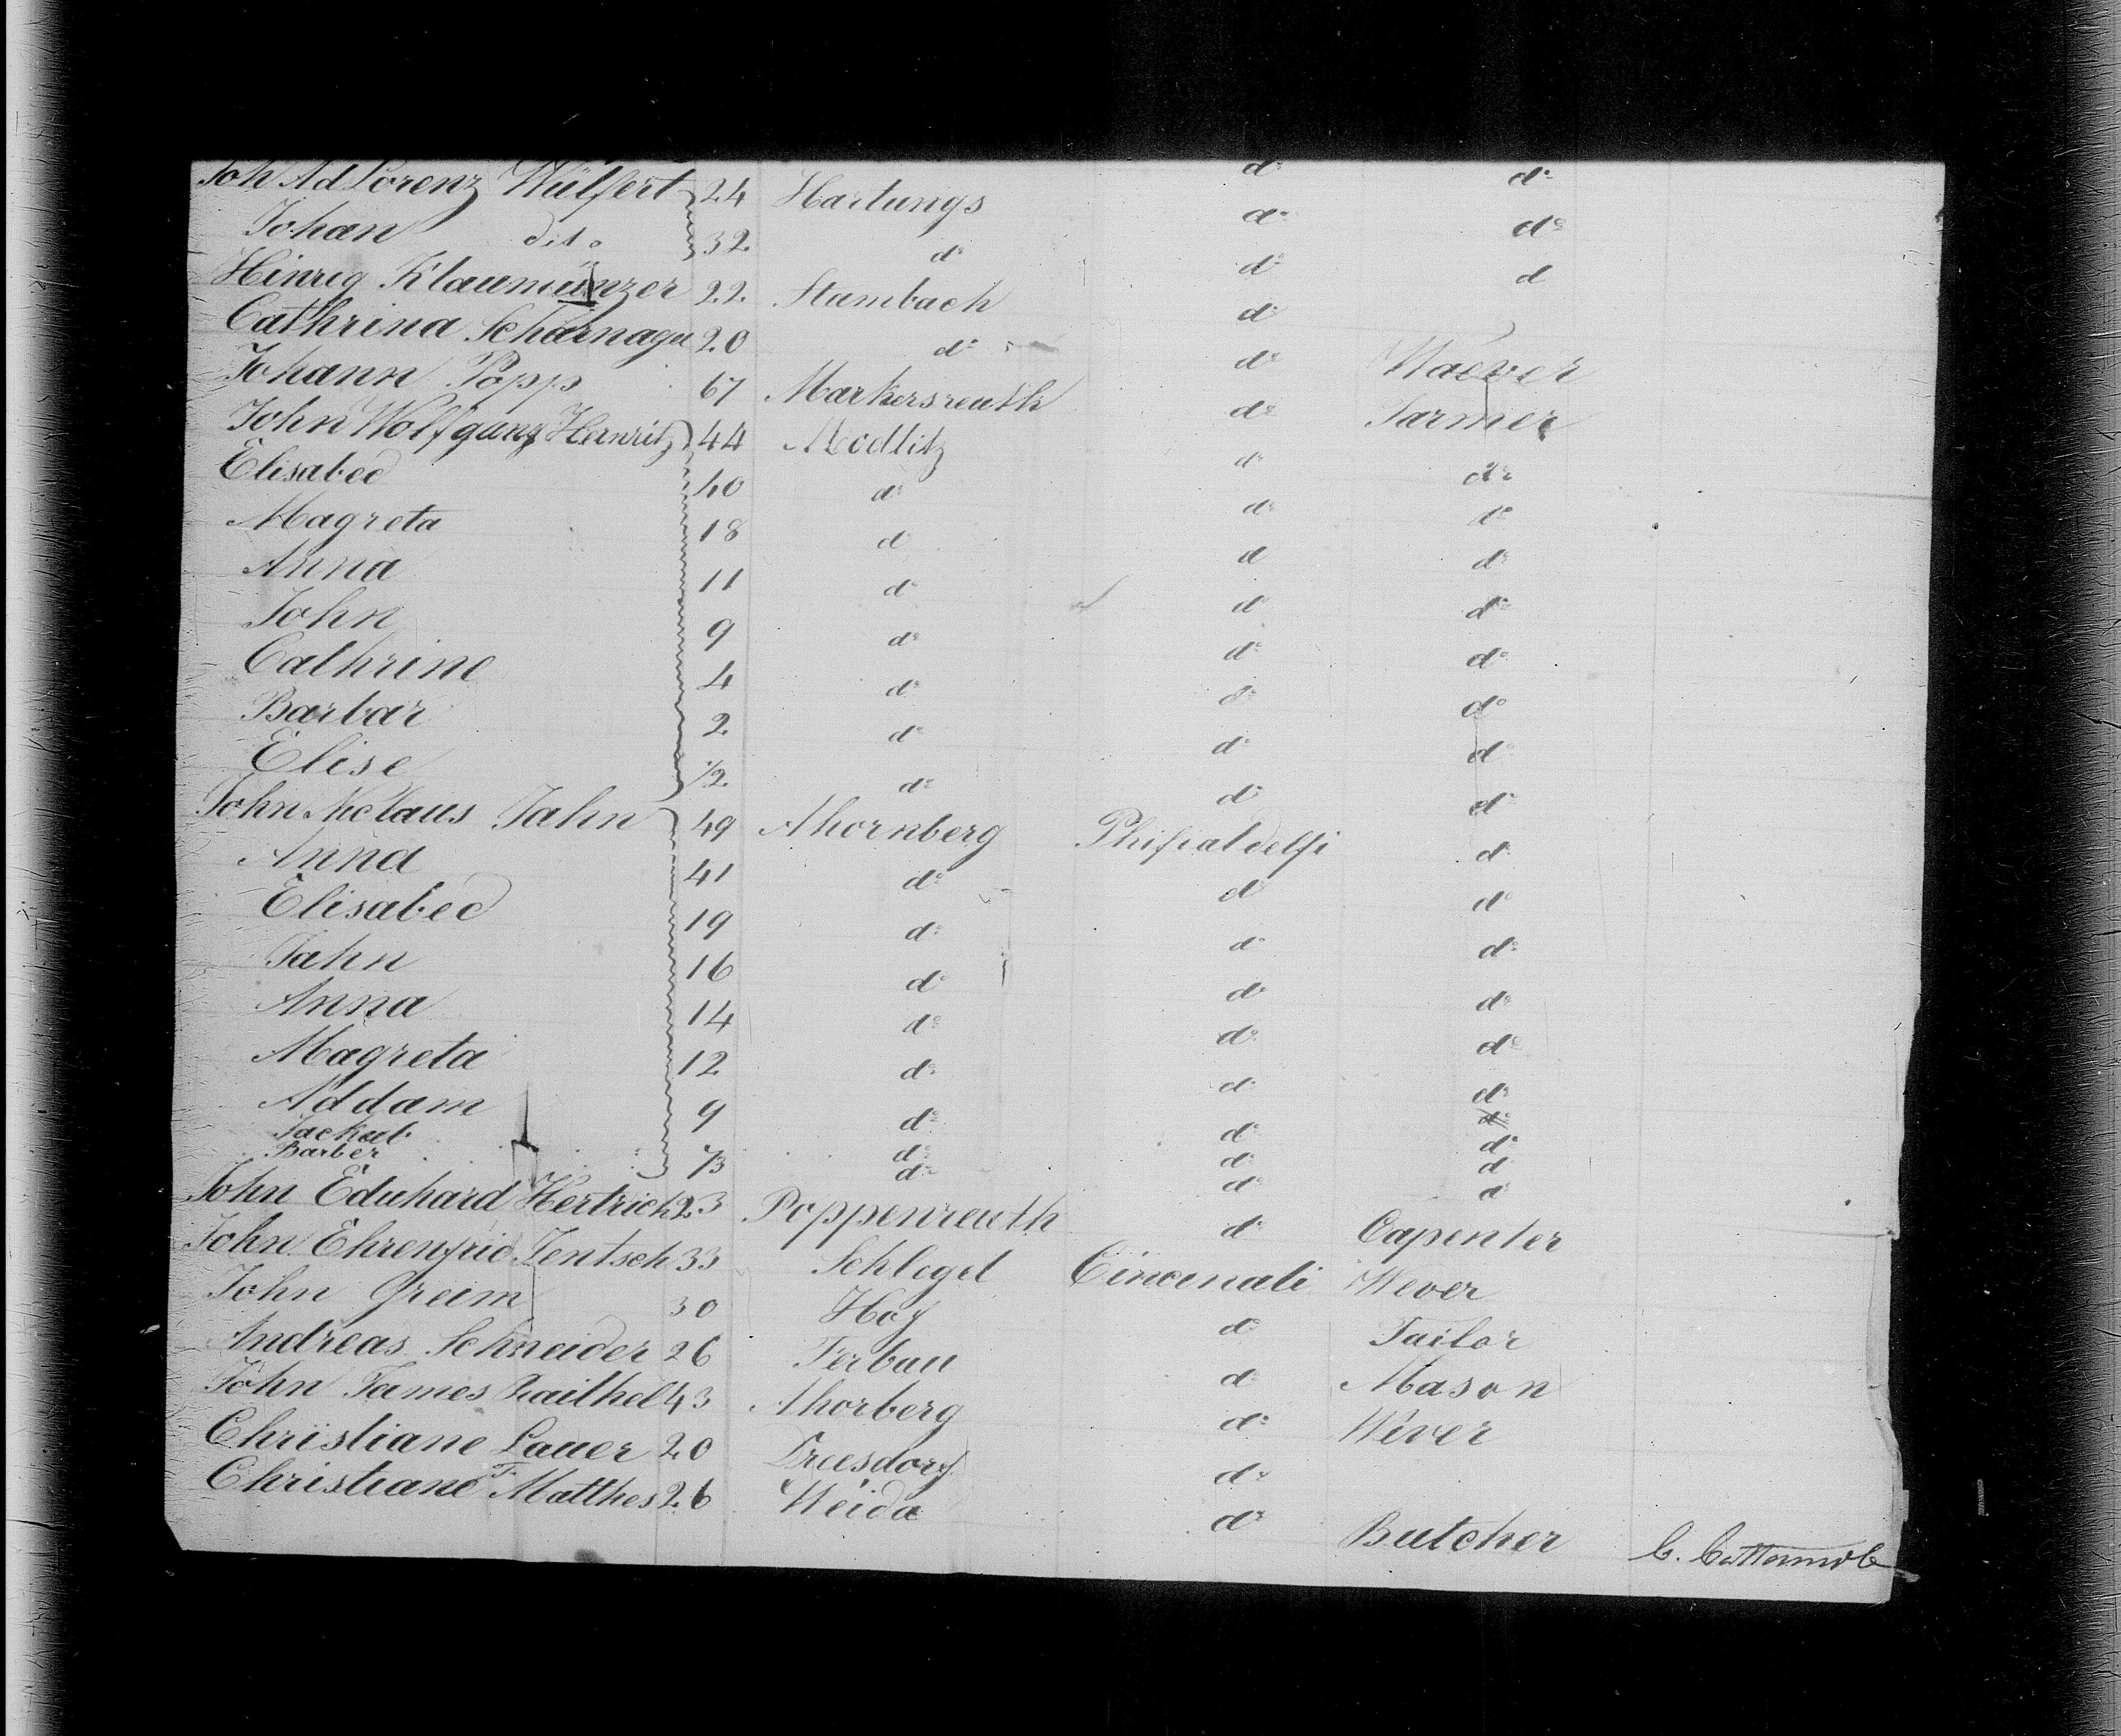 Joh Ad Lorenz Wülfert 24 Hartungs do do
Johan dito 32 do do do
Hinrig Klaumünzer 22 Stambach do d
Cathrina Scharnagel 20 do do
Johann Popp 67 Markersreuth do Waever
John Wolfgang Heinritz 44 Modlitz do Farmer
Elisabed 40 do do do
Magreta 18 d do do
Anna 11 do d do
John 9 do do do
Cathrine 4 do do do
Barbar 2 do do do
Elise 1/2 do do do
John Niclaus Jahn 49 Ahornberg Phifialdelfi do
Anna 41 do do do
Elisabed 19 do do do
Jahn 16 do do do
Anna 14 do do do
Magreta 12 do do do
Addam 9 do do do
Jackub do do do
Barber 1/3 do do d
John Eduhard Hertrich 23 Poppenreuth do Capenter
John Ehrenfried Jentsch 33 Schlegel Cincenati Wever
John Greim 30 Hof do Tailor
Andreas Schneider 26 Ferbau do Mason
John James Raithel 43 Ahorberg do Wever
Christiane Lauer 20 Dreesdorf do
Christiane F. Matthes 26 Weida do Butcher